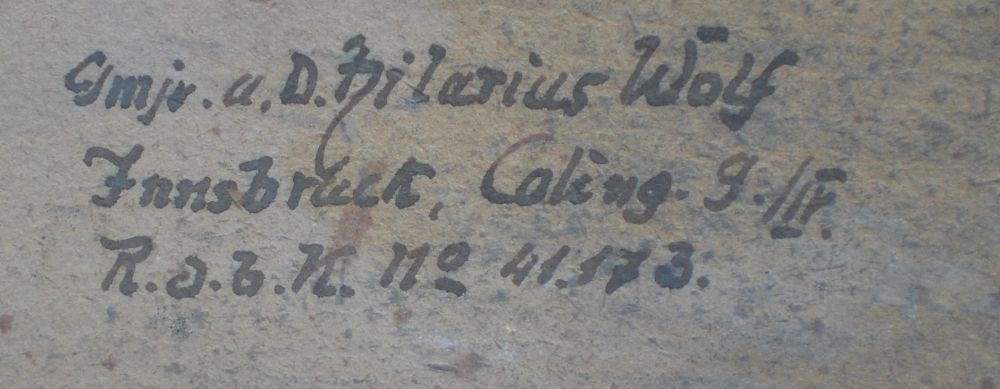 Gmjr. a. D. Hilarius Wolf
Innsbruck, Coling. 9./IV.
R.d.b.K. No 41.173.